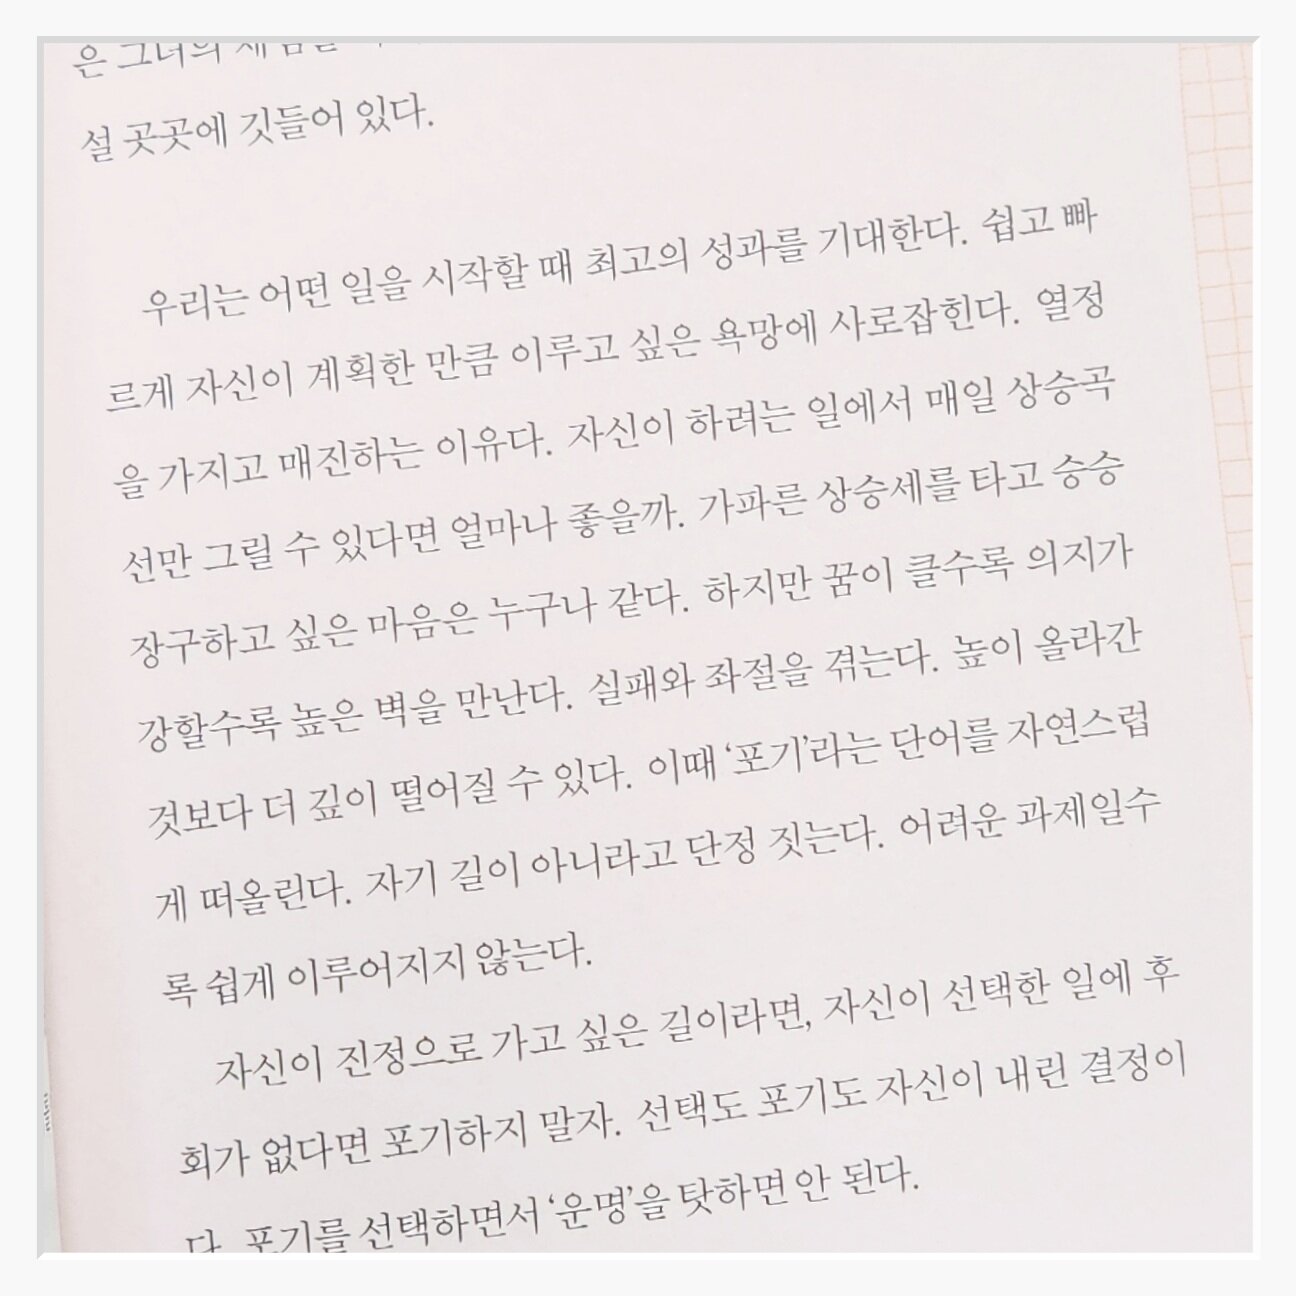 은 그녀의
설 곳곳에 깃들어 있다.
우리는 어떤 일을 시작할 때 최고의 성과를 기대한다. 쉽고 빠
르게 자신이 계획한 만큼 이루고 싶은 욕망에 사로잡힌다. 열정
을 가지고 매진하는 이유다. 자신이 하려는 일에서 매일 상승곡
선만 그릴 수 있다면 얼마나 좋을까. 가파른 상승세를 타고 승승
장구하고 싶은 마음은 누구나 같다. 하지만 꿈이 클수록 의지가
강할수록 높은 벽을 만난다. 실패와 좌절을 겪는다. 높이 올라간
것보다 더 깊이 떨어질 수 있다. 이때 ‘포기’라는 단어를 자연스럽
게 떠올린다. 자기 길이 아니라고 단정 짓는다. 어려운 과제일수
록 쉽게 이루어지지 않는다.
자신이 진정으로 가고 싶은 길이라면, 자신이 선택한 일에 후
회가 없다면 포기하지 말자. 선택도 포기도 자신이 내린 결정이
다. 포기를 선택하면서 ‘운명’을 탓하면 안 된다.